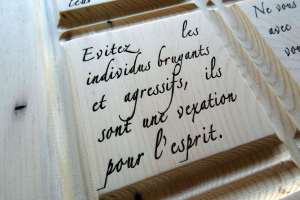 Evitez les
individus bruyants
et agressifs, ils
sont une vexation
pour l'esprit.
Ne vous
avec
vos